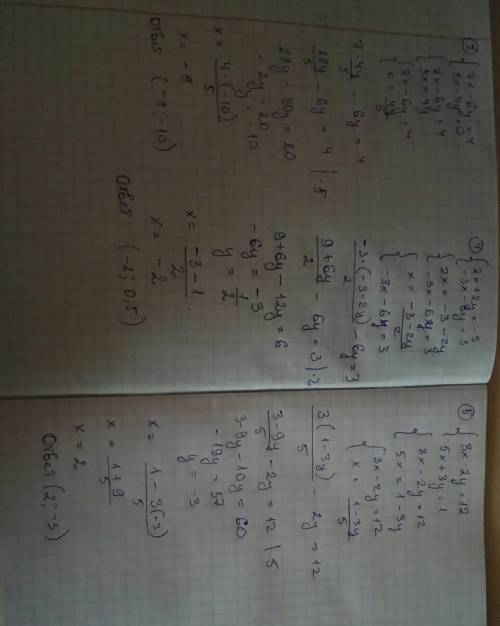 3) { 7x - 6y = 4
5x - 4y = 0
{ 7x - 6y = 4
5x = 4y
{ 7x - 6y = 4
x = 4y/5
7·4y/5 - 6y = 4
28y/5 - 6y = 4 | ·5
28y - 30y = 20
-2y = 20
y = -10
x = 4·(-10)/5
x = -8
Ответ (-8; -10)
4) { 2x + 2y = -3
-3x - 6y = 3
{ 2x = -3 - 2y
-3x - 6y = 3
{ x = -3-2y/2
-3x - 6y = 3
-3·(-3-2y)/2 - 6y = 3
9+6y/2 - 6y = 3 | ·2
9 + 6y - 12y = 6
-6y = -3
y = 1/2
x = -3-1/2
x = -2
Ответ: (-2; 0,5)
5) { 3x - 2y = 12
5x + 3y = 1
{ 3x - 2y = 12
5x = 1 - 3y
{ 3x - 2y = 12
x = 1-3y/5
3(1-3y)/5 - 2y = 12
3-9y/5 - 2y = 12 | ·5
3 - 9y - 10y = 60
-19y = 57
y = -3
x = 1-3(-3)/5
x = 1+9/5
x = 2
Ответ (2; -3)